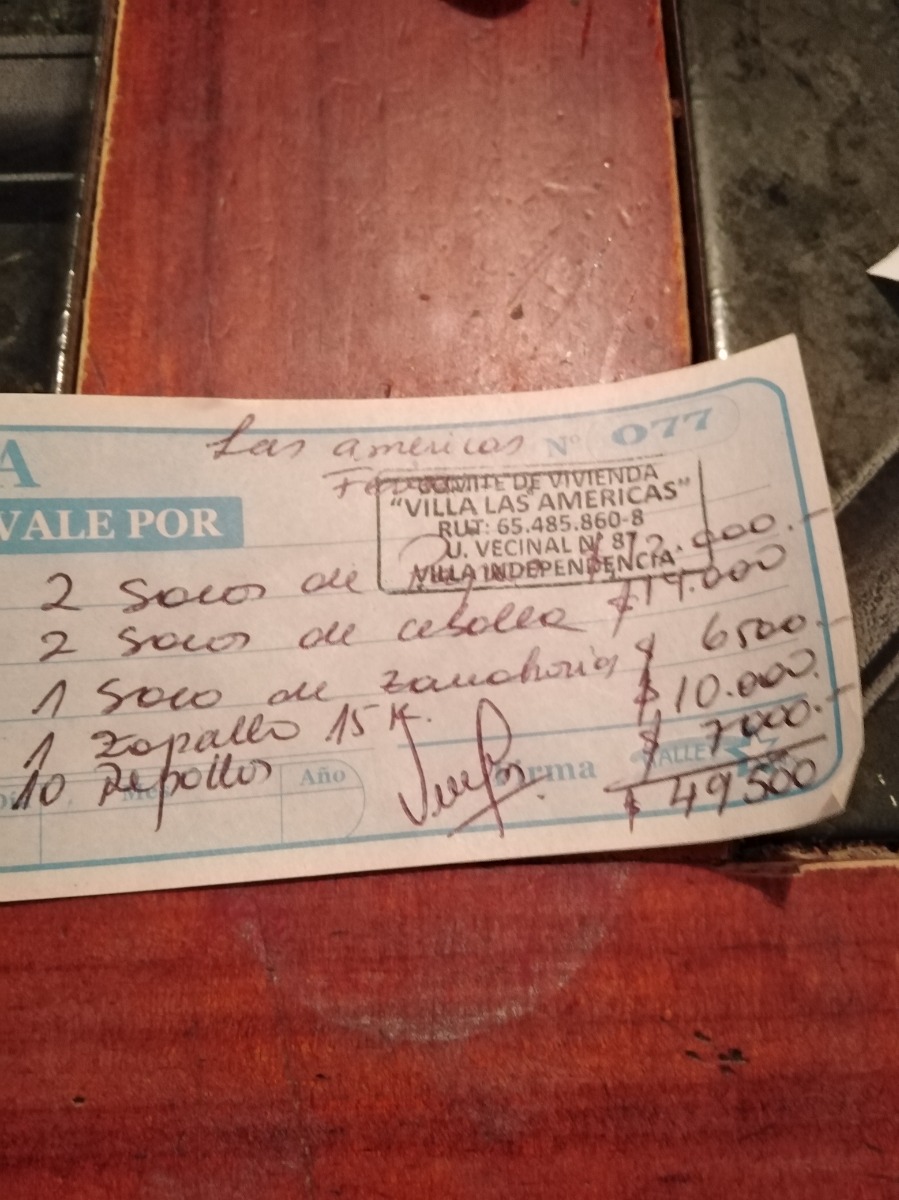 A
Las americas Nº 077
COMITE DE VIVIENDA
"VILLA LAS AMERICAS"
RUT: 65.485.860-8
U. VECINAL Nº 87
VILLA INDEPENDENCIA
VALE POR
2 Sacos de 12.000.-
2 Sacos de cebolla $14.000
1 Saco de zanahoria $ 6500.-
1 Zapallo 15 K. $10.000.
10 Repollos $ 7000.-
Año
Firma
$ 49500